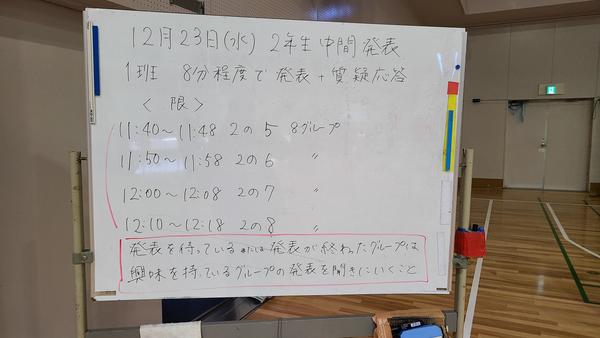 12月23日(水) 2年生 中間発表
1班 8分程度で 発表 + 質疑応答
< 限 >
11:40〜11:48 2の5 8グループ
11:50〜11:58 2の6 〃
12:00〜12:08 2の7 〃
12:10〜12:18 2の8 〃
発表を待っている または 発表が終わったグループは
興味を持っているグループの発表を聞きにいくこと